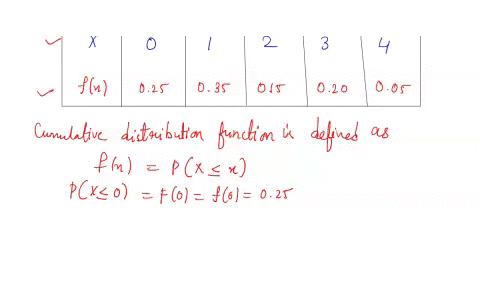 x 0 1 2 3 4
f(x) 0.25 0.35 0.15 0.20 0.05
Cumulative distribution function is defined as
F(x) = P(X ≤ x)
P(X ≤ 0) = F(0) = f(0) = 0.25